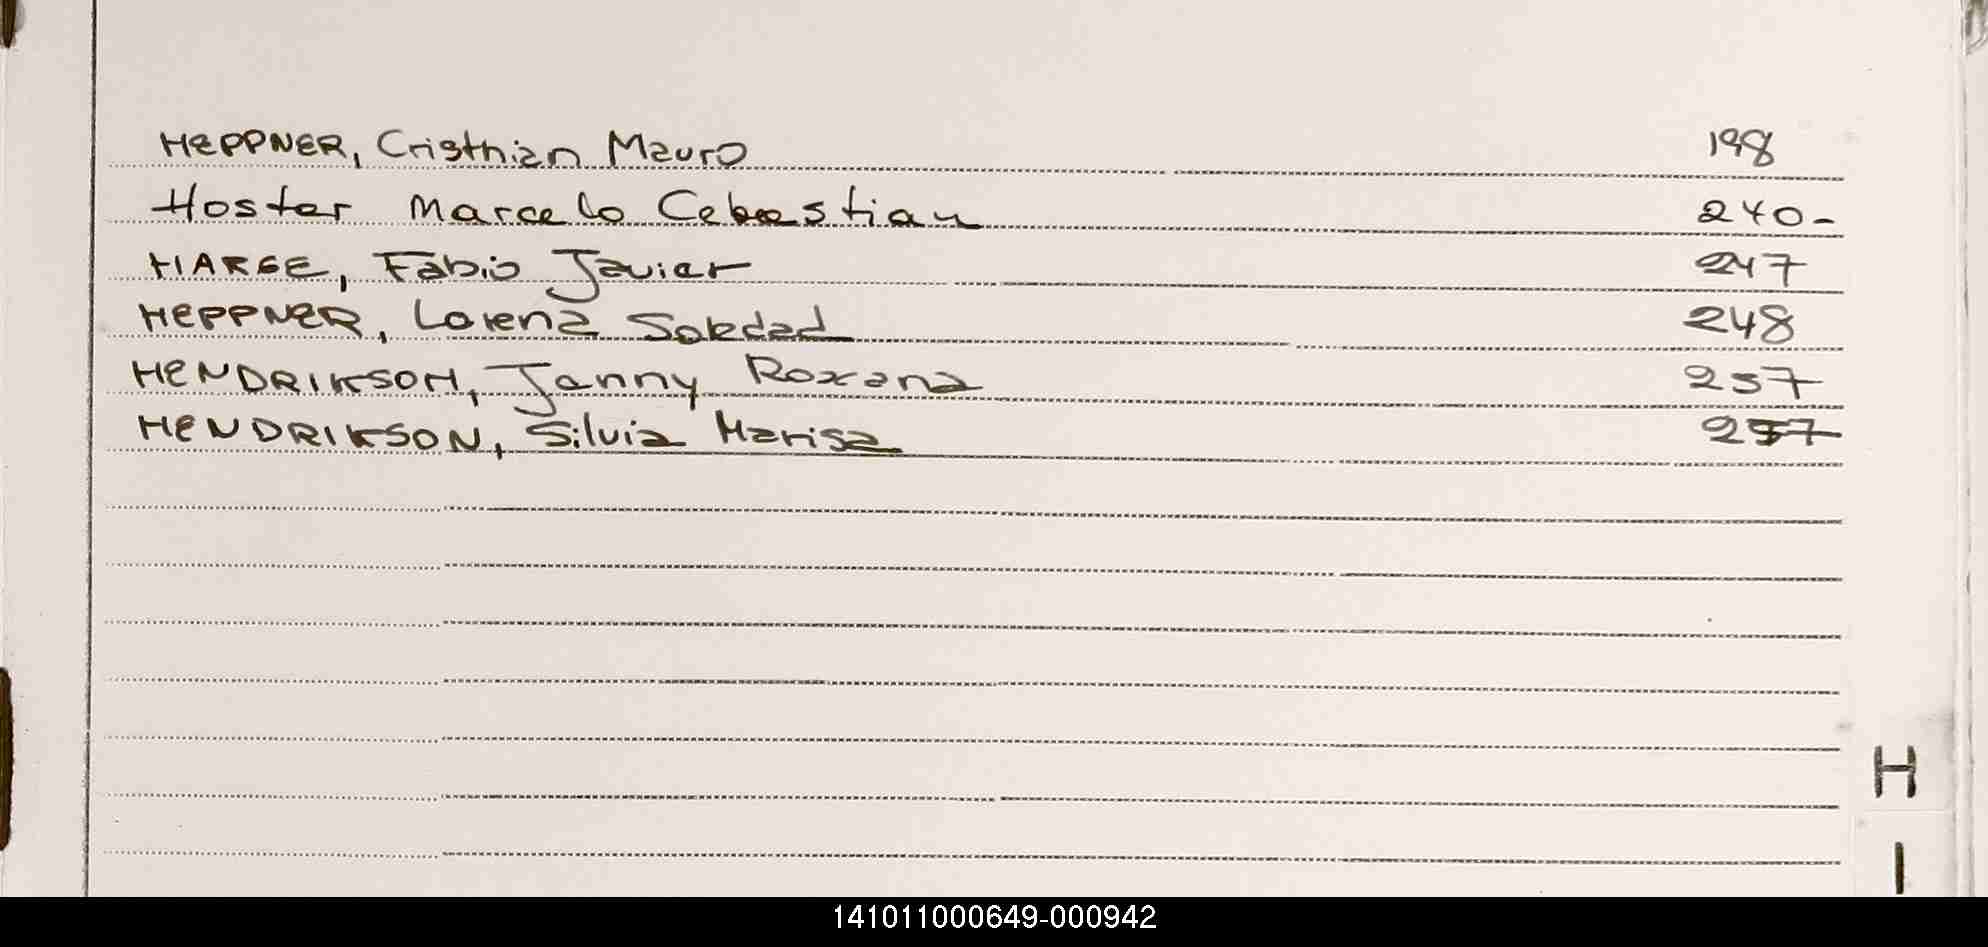 HEPPNER, Cristhian Mauro 198
Hoster Marcelo Cebastian 240-
HARGE, Fabio Javier 247
HEPPNER, Lorena Soledad 248
HENDRIKSON, Janny Roxana 257
HENDRIKSON, Silvia Marisa 257
H
I
141011000649-000942